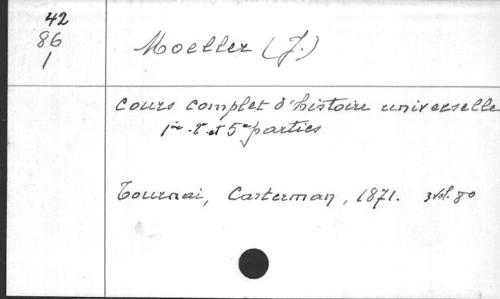 42
86
1
Moeller (J.)
Cours complet d'histoire universelle
1re 2e et 5e parties
Tournai, Casterman, 1871. 3 vol. 80